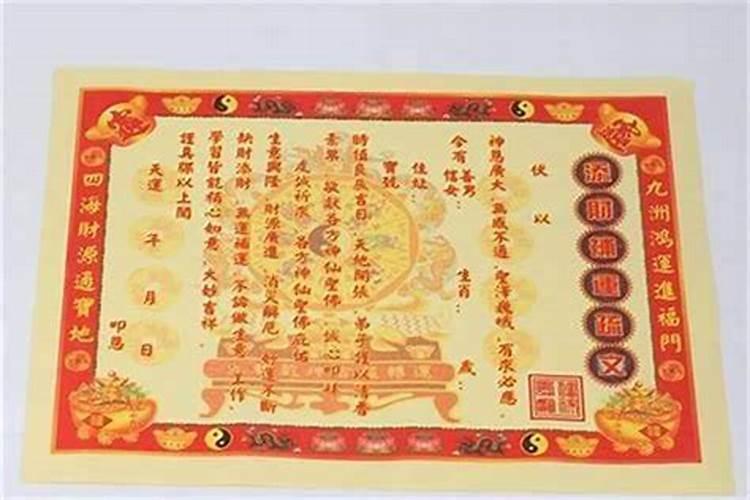 九洲鴻運進福門
添財補運疏文
伏以
神恩廣大 無感不通 聖澤巍峨，有求必應
今有善男信女： 生肖： 歲：
住址：
寶號
時值良辰吉日 天地開張 弟子僅以清香
素果 敬獻各方神仙聖佛 誠心叩拜
虔誠祈求 各方神仙聖佛庇佑
生意興隆 財源廣進 消災解厄 好運不斷
缺財添財 無運補運 不論做生意、工作、
學習皆能稱心如意、大妙吉祥
謹具疏以上聞
天運 年 月 日 叩恩
四海財源通寶地